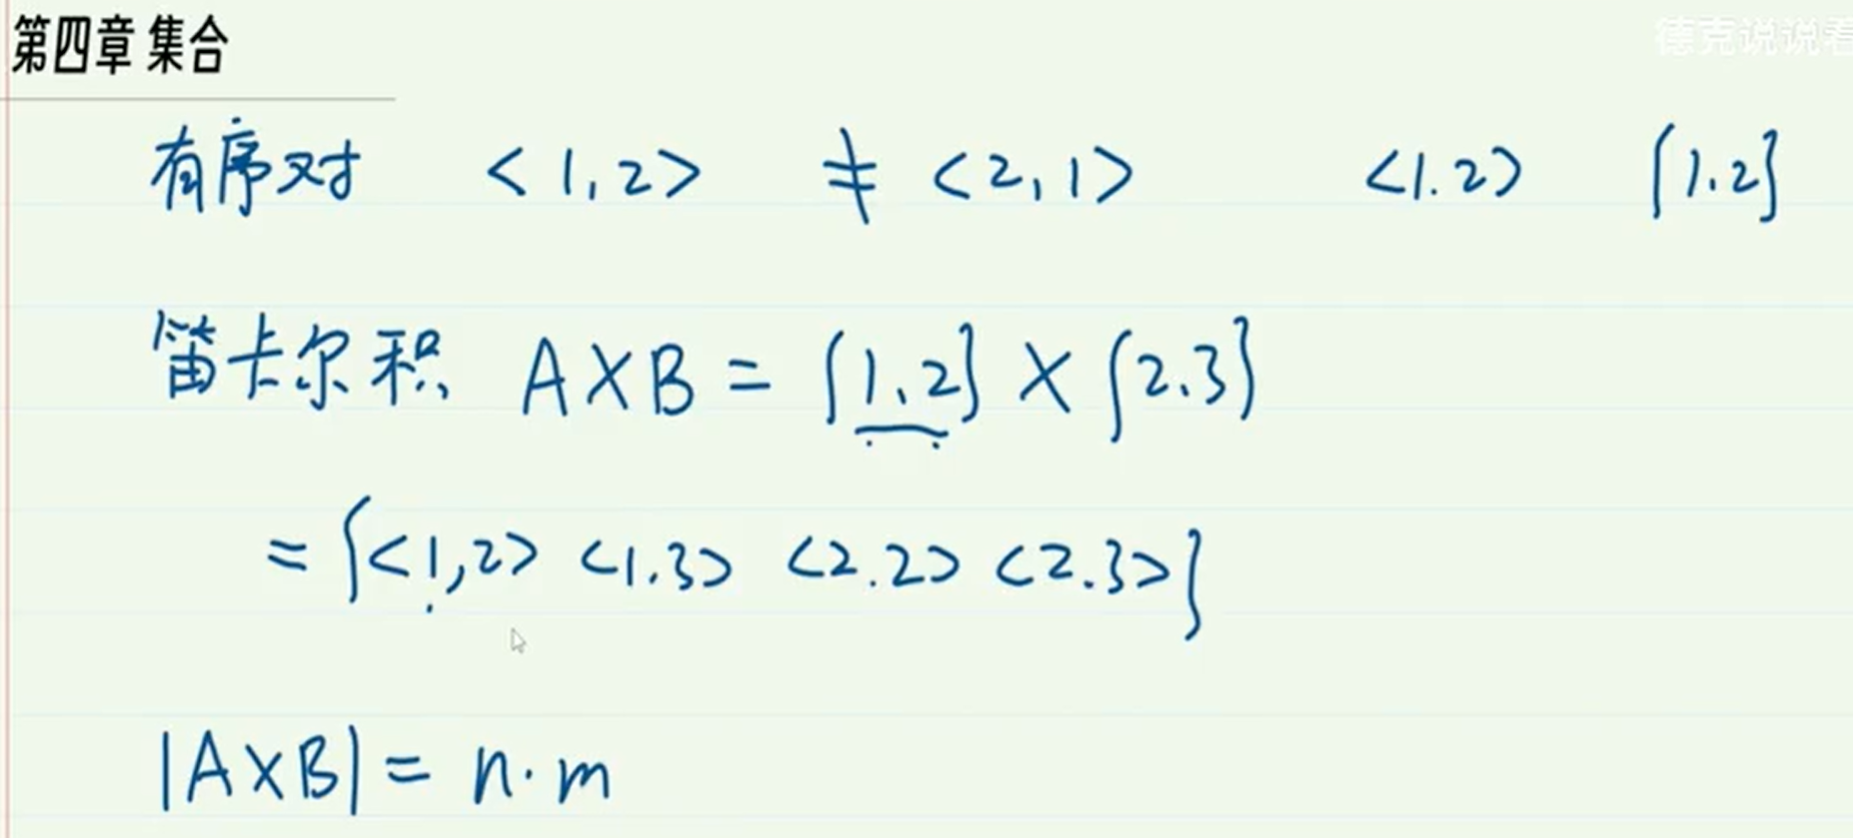 第四章 集合
德克说说看
有序对 <1,2> ≠ <2,1> <1.2> {1.2}
笛卡尔积 A×B = {1.2} × {2.3}
= {<1,2> <1.3> <2.2> <2.3>}
|A×B| = n·m